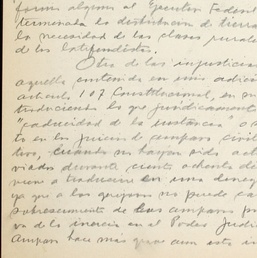 forma alguna al Ejecutivo Federal
terminada la distribución de tierra
la necesidad de las clases rurale
de los latifundistas.
Otra de las injusticias
aquella contenida en una adició
artículo 107 Constitucional, en su
traduciendo lo que jurídicamente
"caducidad de la instancia" o
to en los juicios de amparo civil
tivo, cuando no hayan sido acti
vados durante ciento ochenta d
viene a traducirse en una deneg
ya que a los quejosos no puede ca
sobreseimiento de los amparos
va de la inercia en el Poder Judic
amparo hace más que con este